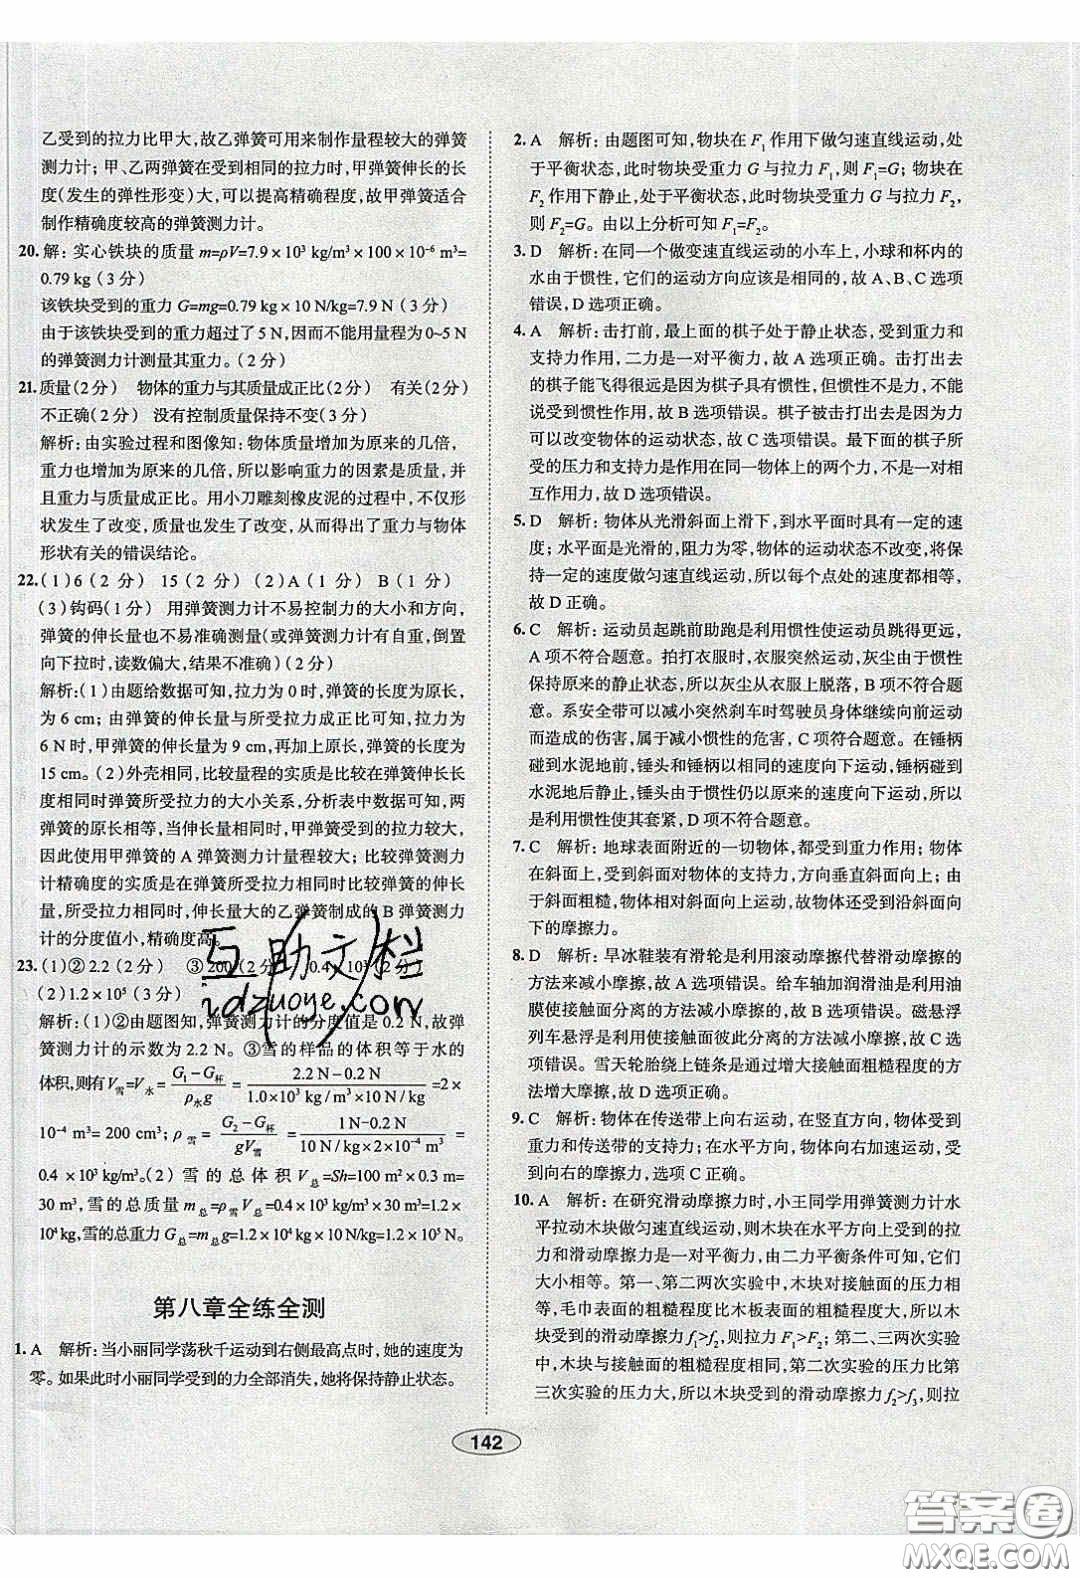 乙受到的拉力比甲大,故乙弹簧可用来制作量程较大的弹簧
测力计;甲、乙两弹簧在受到相同的拉力时,甲弹簧伸长的长
度(发生的弹性形变)大,可以提高精确程度,故甲弹簧适合
制作精确度较高的弹簧测力计。
20.解:实心铁块的质量 m=ρV=7.9×10³ kg/m³×100×10⁻⁶ m³=
0.79 kg(3分)
该铁块受到的重力 G=mg=0.79 kg×10 N/kg=7.9 N(3分)
由于该铁块受到的重力超过了5 N,因而不能用量程为0~5 N
的弹簧测力计测量其重力。(2分)
21.质量(2分) 物体的重力与其质量成正比(2分) 有关(2分)
不正确(2分) 没有控制质量保持不变(3分)
解析:由实验过程和图像知:物体质量增加为原来的几倍,
重力也增加为原来的几倍,所以影响重力的因素是质量,
并且重力与质量成正比。用小刀雕刻橡皮泥的过程中,不仅形
状发生了改变,质量也发生了改变,从而得出了重力与物体
形状有关的错误结论。
22.(1)6(2分) 15(2分) (2)A(1分) B(1分)
(3)钩码(1分) 用弹簧测力计不易控制力的大小和方向,
弹簧的伸长量也不易准确测量(或弹簧测力计有自重,倒置
向下拉时,读数偏大,结果不准确)(2分)
解析:(1)由题给数据可知,拉力为0时,弹簧的长度为原长,
为6 cm;由弹簧的伸长量与所受拉力成正比可知,拉力为
6 N时,甲弹簧的伸长量为9 cm,再加上原长,弹簧的长度为
15 cm。(2)外壳相同,比较量程的实质是比较在弹簧伸长长
度相同时弹簧所受拉力的大小关系,分析表中数据可知,两
弹簧的原长相等,当伸长量相同时,甲弹簧受到的拉力较大,
因此使用甲弹簧的A弹簧测力计量程较大;比较弹簧测力
计精确度的实质是在弹簧所受拉力相同时比较弹簧的伸长
量,所受拉力相同时,伸长量大的乙弹簧制成的B弹簧测力
计的分度值小,精确度高。
23.(1)②2.2(2分) ③200(2分) 0.4×10³(2分)
(2)1.2×10⁵(3分)
解析:(1)②由题图知,弹簧测力计的分度值是0.2 N,故弹
簧测力计的示数为2.2 N。③雪的样品的体积等于水的
体积,则有V雪=V水=(G₁-G杯)/(ρ水g)=(2.2 N-0.2 N)/(1.0×10³ kg/m³×10 N/kg)=2×
10⁻⁴ m³=200 cm³;ρ雪=(G₂-G杯)/(gV雪)=(1 N-0.2 N)/(10 N/kg×2×10⁻⁴ m³)=
0.4×10³ kg/m³。(2)雪的总体积V总=Sh=100 m²×0.3 m=
30 m³,雪的总质量m总=ρ雪V总=0.4×10³ kg/m³×30 m³=1.2×
10⁴ kg,雪的总重力G总=m总g=1.2×10⁴ kg×10 N/kg=1.2×10⁵ N。
第八章全练全测
1. A 解析:当小丽同学荡秋千运动到右侧最高点时,她的速度为
零。如果此时小丽同学受到的力全部消失,她将保持静止状态。
2. A 解析:由题图可知,物块在F₁作用下做匀速直线运动,处
于平衡状态,此时物块受重力G与拉力F₁,则F₁=G;物块在
F₂作用下静止,处于平衡状态,此时物块受重力G与拉力F₂,
则F₂=G。由以上分析可知F₁=F₂。
3. D 解析:在同一个做变速直线运动的小车上,小球和杯内的
水由于惯性,它们的运动方向应该是相同的,故A、B、C选项
错误,D选项正确。
4. A 解析:击打前,最上面的棋子处于静止状态,受到重力和
支持力作用,二力是一对平衡力,故A选项正确。击打出去
的棋子能飞得很远,是因为棋子具有惯性,但惯性不是力,不能
说受到惯性作用,故B选项错误。棋子被击打出去是因为力
可以改变物体的运动状态,故C选项错误。最下面的棋子所
受的压力和支持力是作用在同一物体上的两个力,不是一对相
互作用力,故D选项错误。
5. D 解析:物体从光滑斜面上滑下,到水平面时具有一定的速
度;水平面是光滑的,阻力为零,物体的运动状态不改变,将保
持一定的速度做匀速直线运动,所以每个点处的速度都相等,
故D选项正确。
6. C 解析:运动员起跳前助跑是利用惯性使运动员跳得更远,
A项不符合题意。拍打衣服时,衣服突然运动,灰尘由于惯性
保持原来的静止状态,所以灰尘从衣服上脱落,B项不符合题
意。系安全带可以减小突然刹车时驾驶员身体继续向前运动
造成的伤害,属于减小惯性的危害,C项符合题意。在锤柄
碰到水泥地前,锤头和锤柄以相同的速度向下运动,锤柄碰到
水泥地后静止,锤头由于惯性仍以原来的速度向下运动,所
以是利用惯性使其套紧,D项不符合题意。
7. C 解析:地球表面附近的一切物体,都受到重力作用;由于
在斜面上,受到斜面对物体的支持力,方向垂直斜面向上;由
于斜面粗糙,物体相对斜面向上运动,故物体还受到沿斜面向
下的摩擦力。
8. D 解析:旱冰鞋装有滑轮是利用滚动摩擦代替滑动摩擦的
方法来减小摩擦的,故A选项错误。给车轴加润滑油是利用油
膜使接触面分离的方法减小摩擦的,故B选项错误。磁悬浮
列车悬浮行驶是利用使接触面彼此分离的方法减小摩擦,故C选
项错误。雪天轮胎绕上链条是通过增大接触面粗糙程度的方
法增大摩擦,故D选项正确。
9. C 解析:物体在传送带上向右运动,在竖直方向,物体受到
重力和传送带的支持力;在水平方向,物体向右加速运动,受
到向右的摩擦力,选项C正确。
10. A 解析:在研究滑动摩擦力时,小王同学用弹簧测力计水
平拉动木块做匀速直线运动,则木块在水平方向上受到的拉
力和滑动摩擦力是一对平衡力,由二力平衡条件可知,它们
大小相等。第一、第二两次实验中,木块对接触面的压力相
等,毛巾表面的粗糙程度比木板表面的粗糙程度大,所以木
块受到的滑动摩擦力f₁>f₂,则拉力F₁>F₂;第二、三两次实验
中,木块与接触面的粗糙程度相同,第二次实验的压力比第
三次实验的压力大,所以木块受到的滑动摩擦力f₂>f₃,则拉
142
互助文档
idzuoye.com
答案圈
MXQE.COM